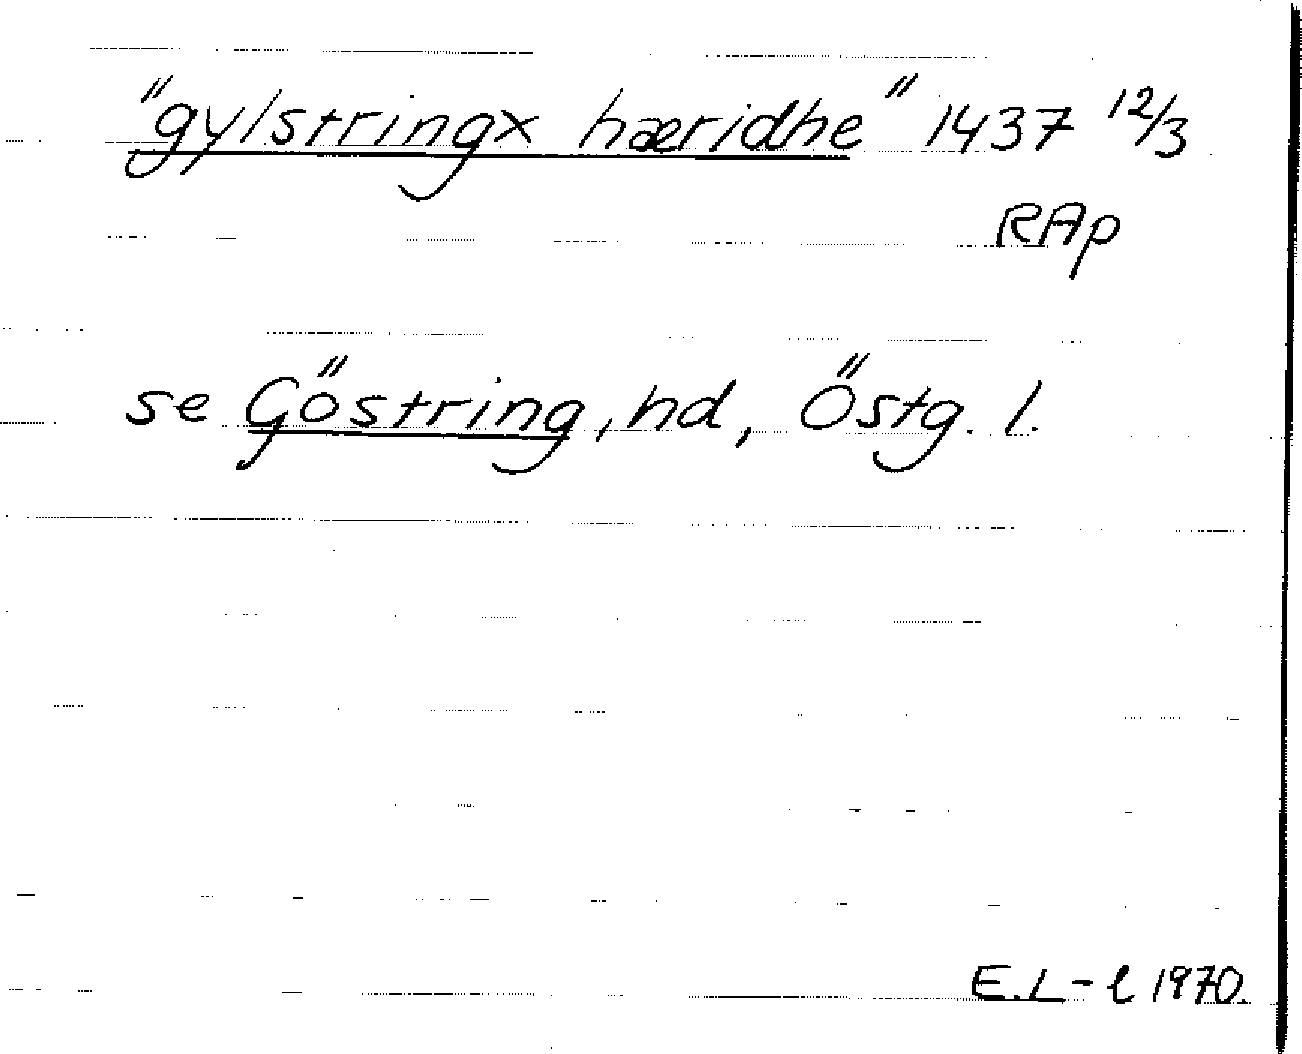 "gylstringx hæridhe" 1437 12/3
RAp
se Göstring, hd, Östg. l.
E.L-l 1970.